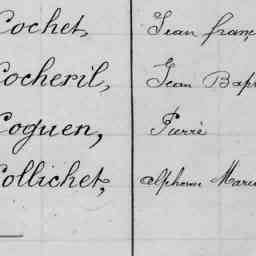 Cochet, Jean franç
Cocheril, Jean Bap
Coguen, Pierre
Collichet, alphonse Marie